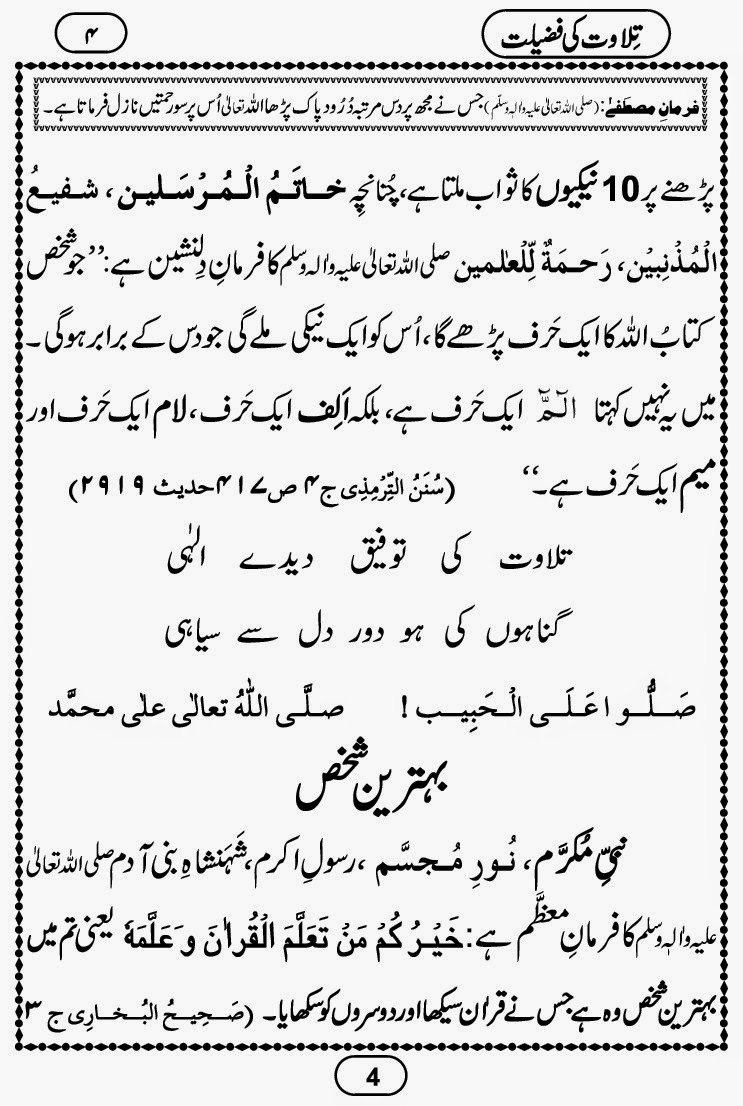 تِلاوت کی فضیلت
۴
فرمانِ مصطَفٰے: (صلی اللہ تعالیٰ علیہ واٰلہٖ وسلّم) جس نے مجھ پر دس مرتبہ دُرُود پاک پڑھا اللہ تعالیٰ اُس پر سو رحمتیں نازل فرماتا ہے۔
پڑھنے پر 10 نیکیوں کا ثواب ملتا ہے، چُنانچِہ خاتَمُ الْمُرْسَلین، شفیعُ
الْمُذْنِبِیْن، رَحمَۃٌ لِّلْعٰلَمین صلی اللہ تعالیٰ علیہ واٰلہ وسلم کا فرمانِ دِلنشین ہے: ’’جو شخص
کتابُ اللہ کا ایک حَرف پڑھے گا، اُس کو ایک نیکی ملے گی جو دس کے برابر ہوگی۔
میں یہ نہیں کہتا الٓمّٓ ایک حَرف ہے، بلکہ اَلِف ایک حَرف، لام ایک حَرف اور
میم ایک حَرف ہے۔‘‘ (سُنَنُ التِّرْمِذِی ج۴ ص۴۱۷ حدیث ۲۹۱۹)
تلاوت کی توفیق دیدے الٰہی
گناہوں کی ہو دور دل سے سیاہی
صَلُّوا عَلَی الْحَبِیب! صلَّی اللّٰہُ تعالٰی علٰی محمَّد
بہترین شخص
نبیِّ مُکَرَّم، نُورِ مُجسَّم، رسولِ اکرم، شَہَنشاہِ بنی آدم صلی اللہ تعالیٰ
علیہ واٰلہٖ وسلم کا فرمانِ معظَّم ہے: خَیْرُکُمْ مَنْ تَعَلَّمَ الْقُرْاٰنَ وَعَلَّمَہٗ یعنی تم میں
بہترین شخص وہ ہے جس نے قراٰن سیکھا اور دوسروں کو سکھایا۔ (صَحِیحُ البُخارِی ج ۳
4